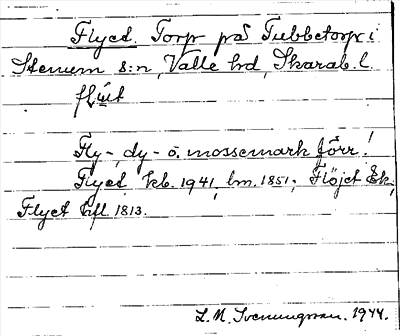 Flyet. Torp på Tubbetorp i
Stenum s:n, Valle hd, Skarab. l.
flyet
Fly-, dy- o. mossemark förr!
Flyet kb. 1941, lm. 1851; Flöjet Ek;
Flyet Hfl 1813.
L. M. Svenungsson. 1944.